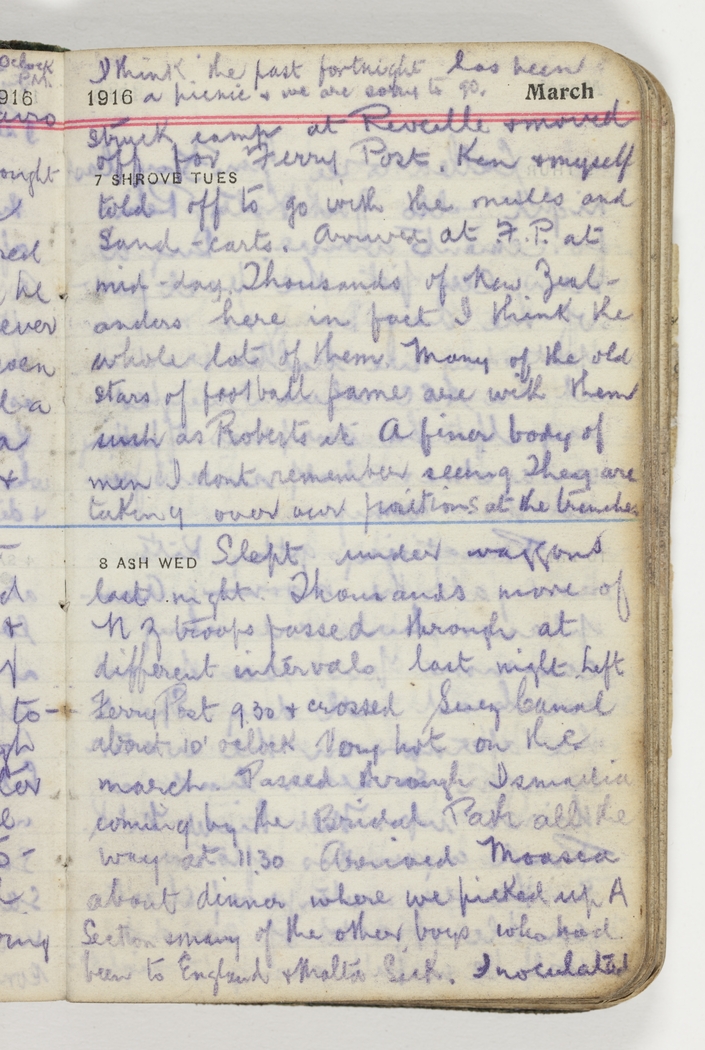 I think the past fortnight has been
1916 a picnic & we are sorry to go. March
struck camp at Reveille & moved
off for Ferry Post. Ken & myself
7 SHROVE TUES
told off to go with the mules and
Sand-carts. Arrived at F.P. at
mid-day. Thousands of New Zeal-
anders here in fact I think the
whole lot of them. Many of the old
stars of football fame are with them
such as Roberts etc A finer body of
men I dont remember seeing They are
taking over our positions at the trenches
8 ASH WED Slept under waggons
last night Thousands more of
N Z troops passed through at
different intervals last night. Left
Ferry Post 9.30 & crossed Suez Canal
about 10' oclock Very hot on the
march. Passed through Ismailia
coming by the Bridal Path all the
way at 11.30 Arrived Moasca
about dinner where we picked up A
Section & many of the other boys who had
been to England & Malta Sick. Inoculated
oclock
P.M.
916
ought
he
ever
a
&
to-